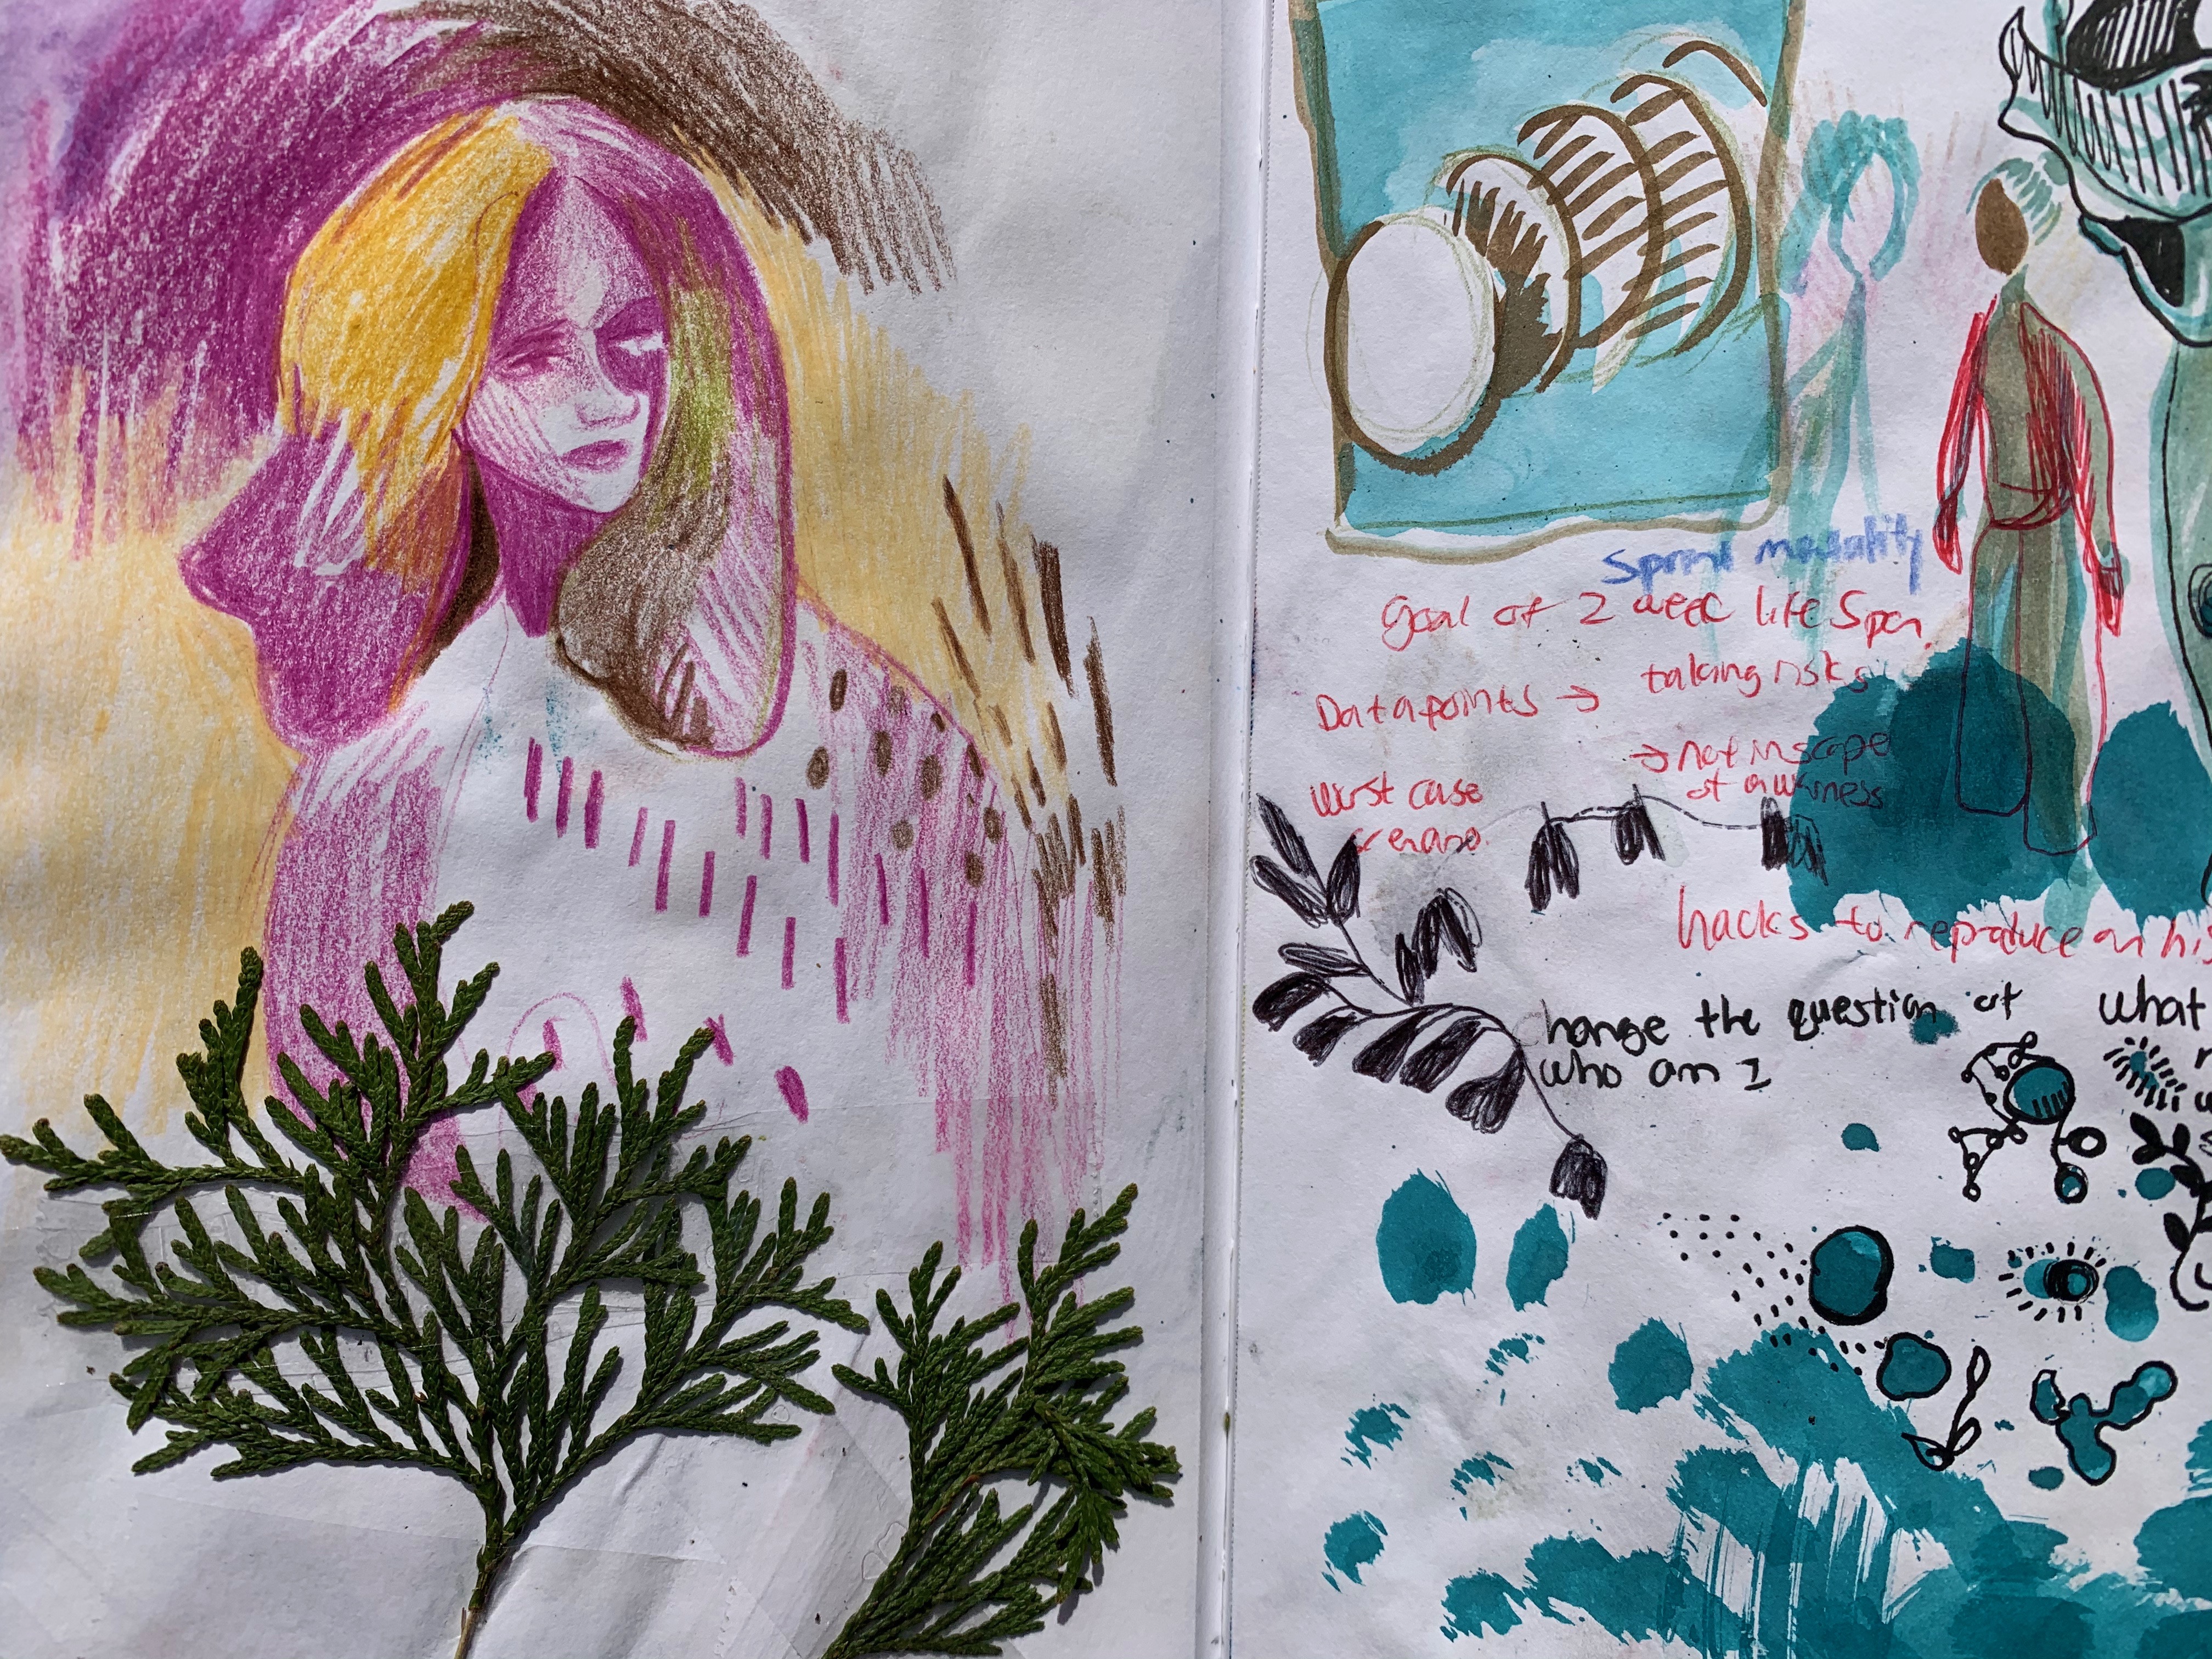 Sprint mortality
Goal of 2 week life Span
Datapoints → taking risks
→ not in scope
of awarness
worst case
scenario
hacks to reproduce on his
change the question of what
who am I